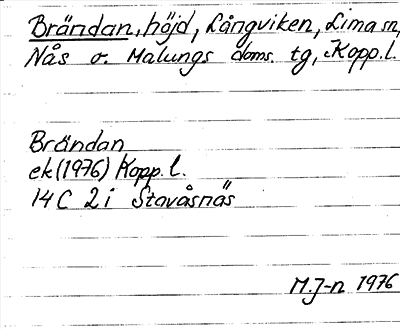 Brändan, höjd, Långviken, Lima sn,
Nås o. Malungs doms. tg, Kopp.l.
Brändan
ek (1976) Kopp. l.
14 C 2 i Stavåsnäs
M.J-n 1976